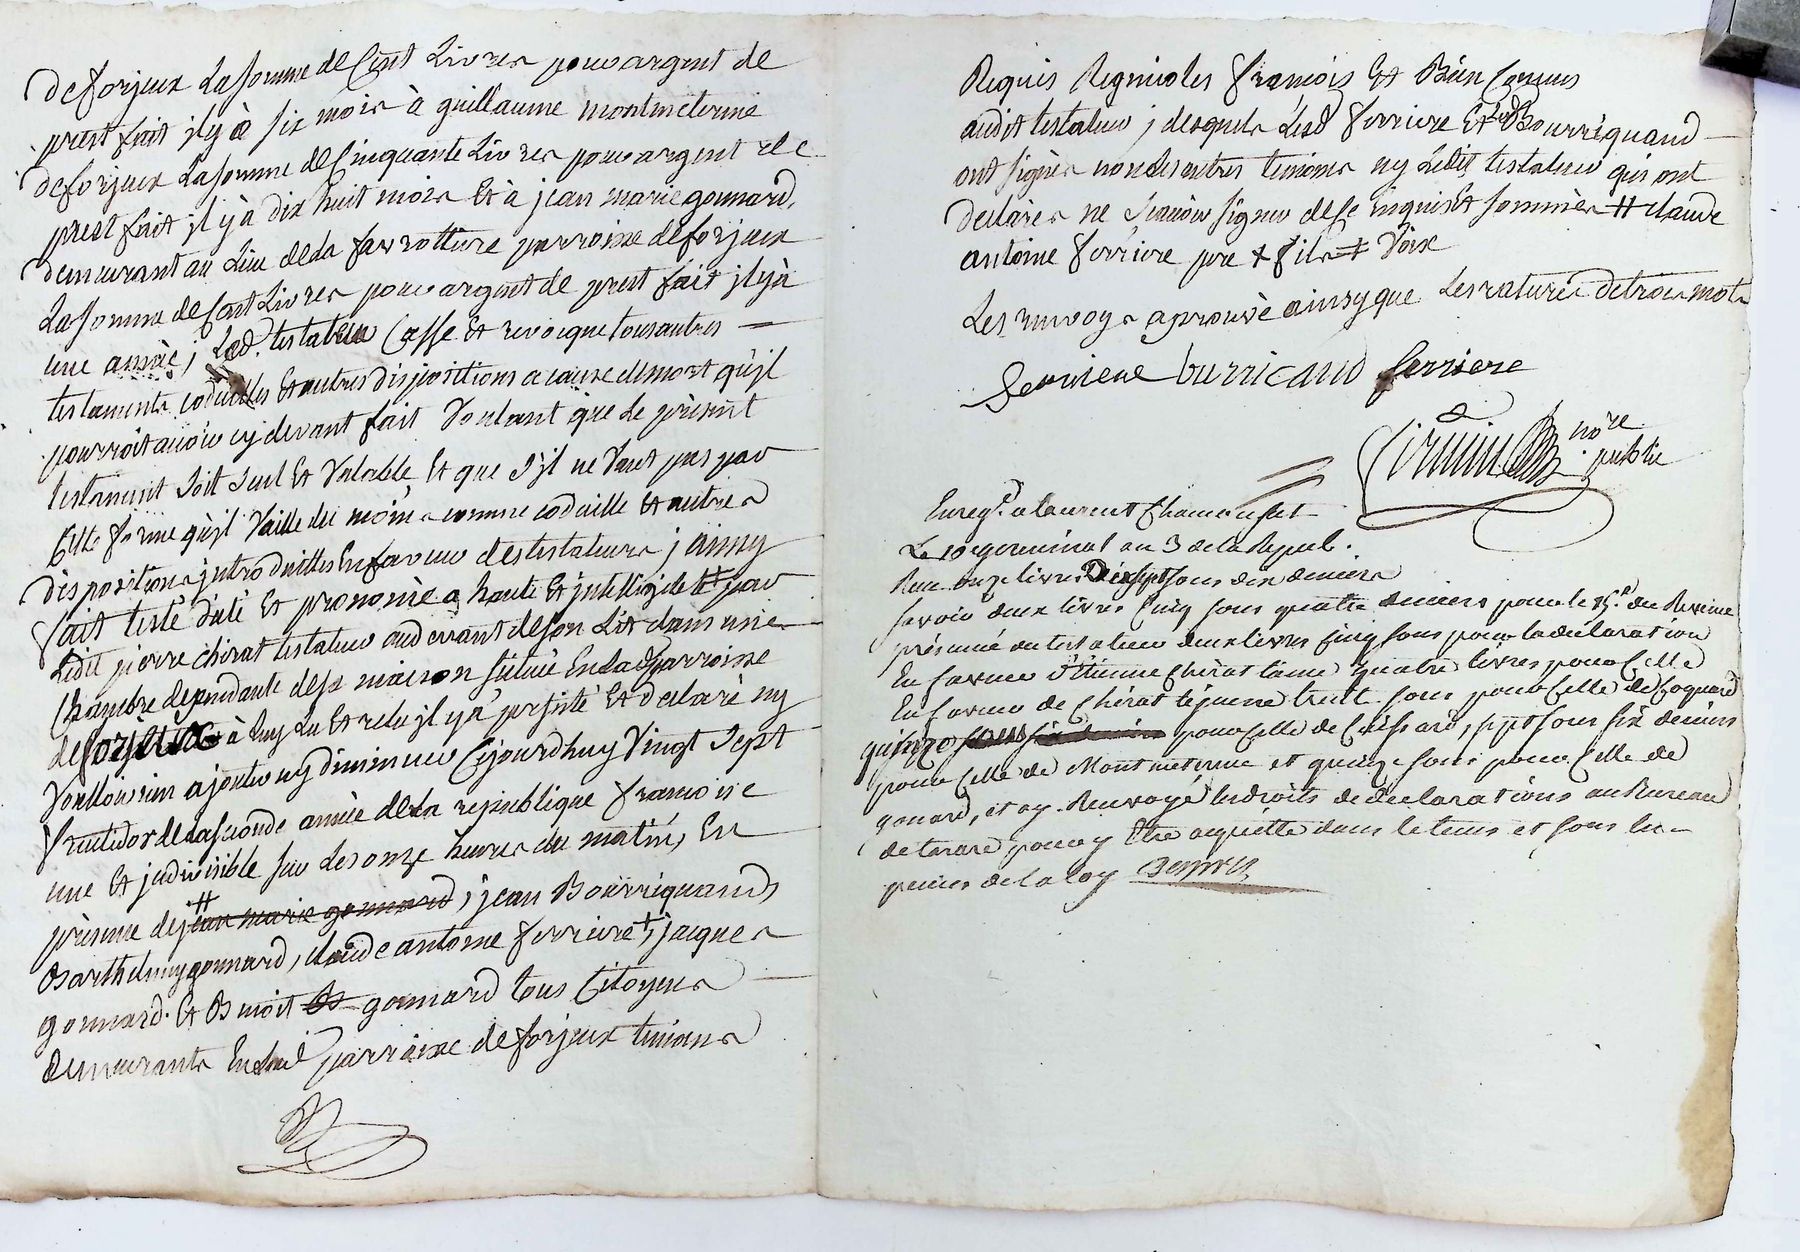 de forjeux La somme de Cent Livres pour argent de
prest fait il y à six mois à guillaume montmeterme
de forjeux La somme de Cinquante Livres pour argent de
prest fait il y à dix huit mois Et à jean marie gonnard,
demeurant au Lieu de la favrotture parroisse de forjeux
La somme de Cent Livres pour argent de prest fait il yà
une année; Led. testateur Casse Et revocque tous autres
testaments codicilles Et autres dispositions a cause de mort qu'jl
pourroit auoir cy devant fait Voulant que Le présent
testament soit seul Et Valable Et que s'jl ne Vaut pas par
Cette forme qu'jl Vaille du moins comme codicille Et autres
dispositions jntroduittes En faveur des testateurs; ainsy
fait testé daté Et prononcé a haute Et jntelligible ++ par
Ledit pierre chirat testateur audevant de son Lit dans une
Chambre dependante de sa maison située En lad. parroisse
de forjeux à Luy Lu Et relu jl y a persisté Et declaré ny
Voulloir rien ajouter ny diminuer Cejourdhuy Vingt sept
fructidor de la seconde année de la republique francoise
une Et jndivisible sur Les onze heures du matin, En
présence de ++ jean marie gonnard, jean Bourriquand,
Barthelemy gonnard, claude antoine ferriere +, jacques
gonnard. Et Benoit Be gonnard tous Citoyens
demeurants En Lad. parroisse de forjeux temoins
Requis Regnicoles francois Et Bien Connus
audit testateur; desquels Lesd. ferriere Et Led. Bourriquand
ont signés non Les autres temoins ny Ledit testateur qui ont
declarés ne scauoir signer de Ce Enquis Et sommés ++ claude
antoine ferriere pere + fils ++ Voix
Les renvoys aprouvé ainsy que Les ratures de trois mots
ferriere burricand ferriere
no.re
public
Enreg.é a Laurent Chamousset
Le 10 germinal an 3 de la Repub.
Recu onze livres Dixsept sous dix deniers
savoir deux livres Cinq sous quatre deniers pour le 15.e du Revenu
présumé du testateur deux livres Cinq sous pour la declaration
En faveur d'Etienne Chirat l'ainé quatre livres pour Celle
En faveur de Chirat le jeune trente sous pour Celle de Coquard
quinze sous six deniers pour Celle de Chissard, sept sous six deniers
pour Celle de Montmeterme et quinze sous pour Celle de
gonard, et ay Renvoyé les droits de declarations au Bureau
de tarare pour y Etre acquitté dans le tems et sous les
peines de la loy